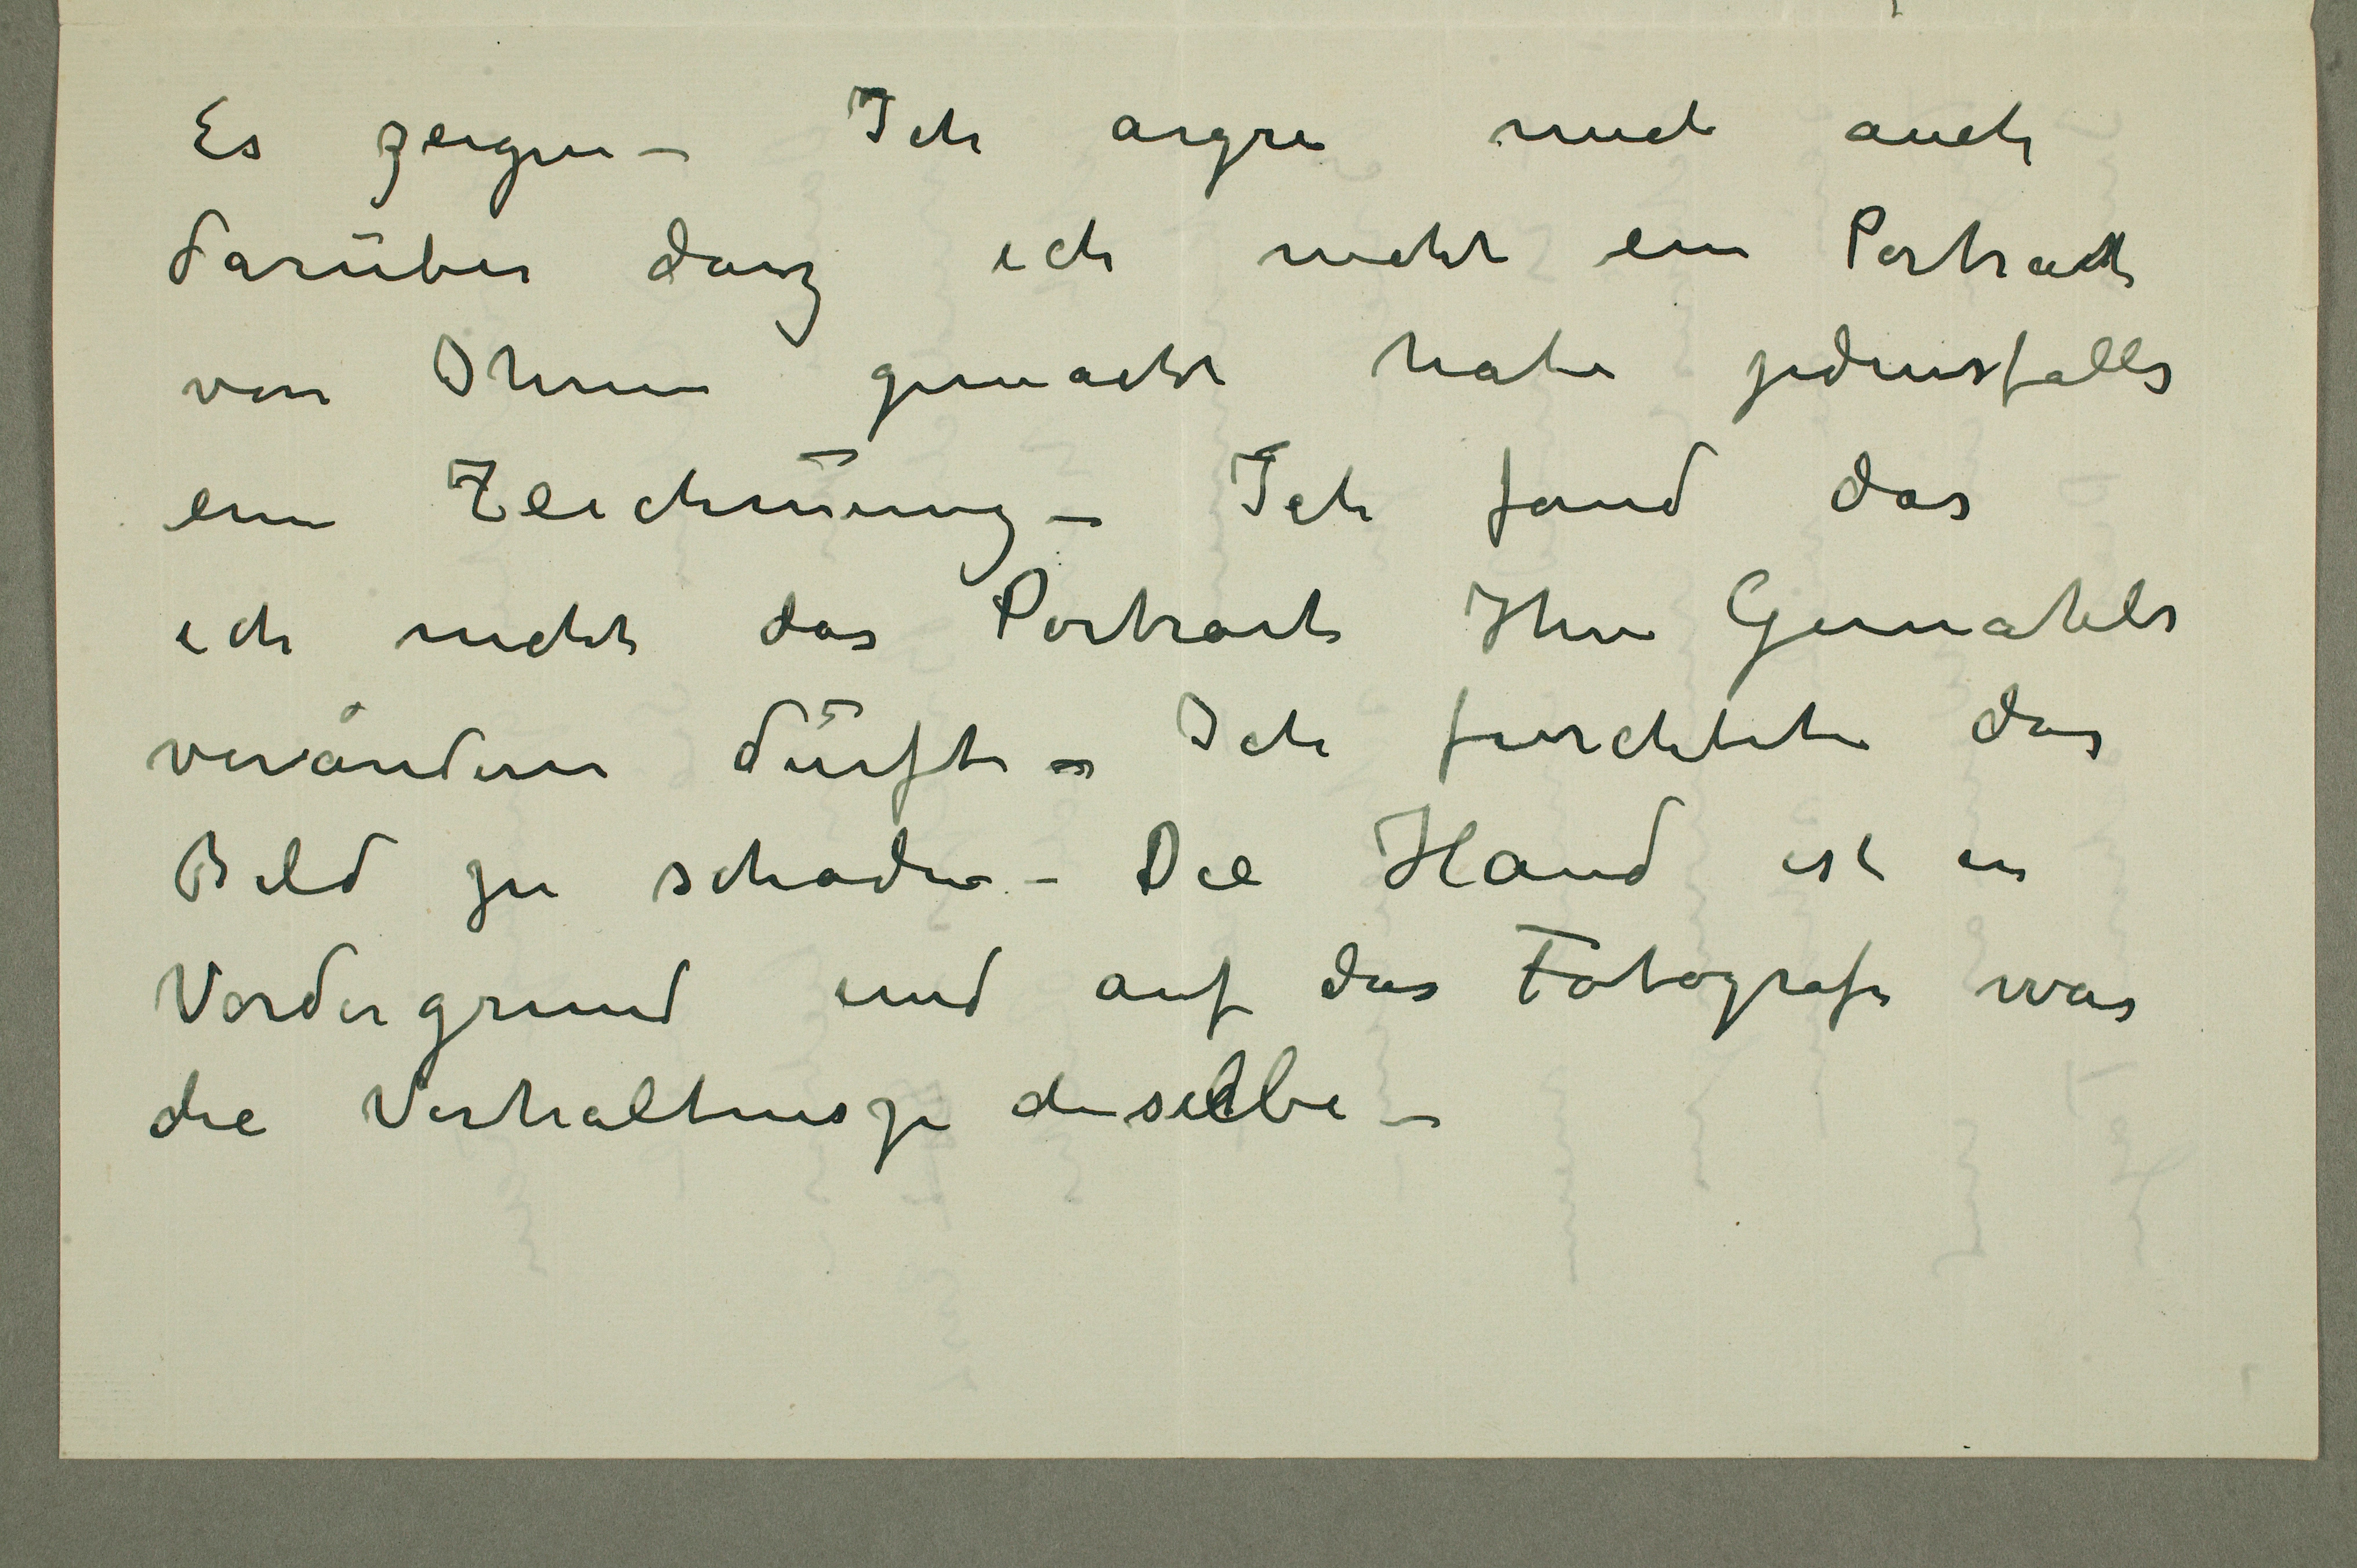 Es zeigen – Ich argre mich auch
darüber dasz ich nicht ein Portrait
von Ihnen gemacht habe jedensfalls
eine Zeichnung – Ich fand das
ich nicht das Portrait Ihre Gemahls
verändern dürfte – Ich furchtete das
Bild zu schaden – Die Hand ist in
Vordergrund und auf das Fotografi war
die Verhaltnisze dieselbe –